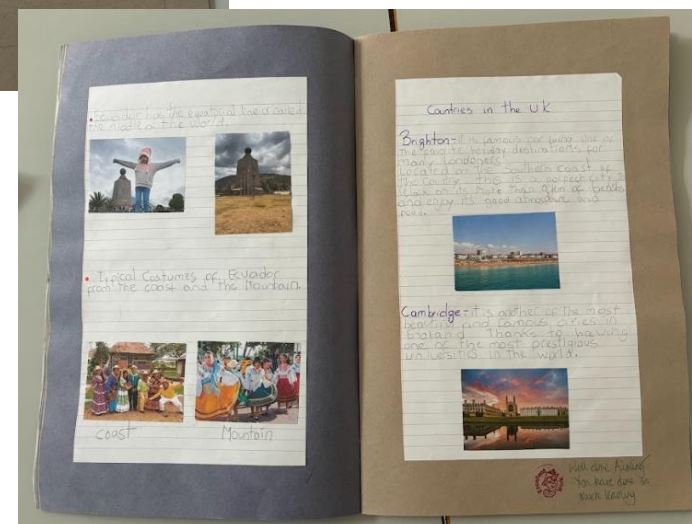 Ecuador has the equatorial line is called
the middle of the world.
Typical Costumes of Ecuador
from the coast and the Mountain.
coast
Mountain
Countries in the UK
Brighton= it is famous for being one of
the favorite holiday destinations for
many Londoners.
Located on the Southern Coast of
the Country this is a perfect city to
relax on its more than 9km of beach
and enjoy its good atmosphere and
Cambridge= it is another of the most
beautiful and famous cities in
England. Thanks to having
one of the most prestigious
universities in the world.
Well done
You have done so
much